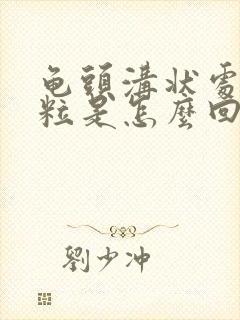 龟頭溝狀處
粒是怎麼回
劉少冲